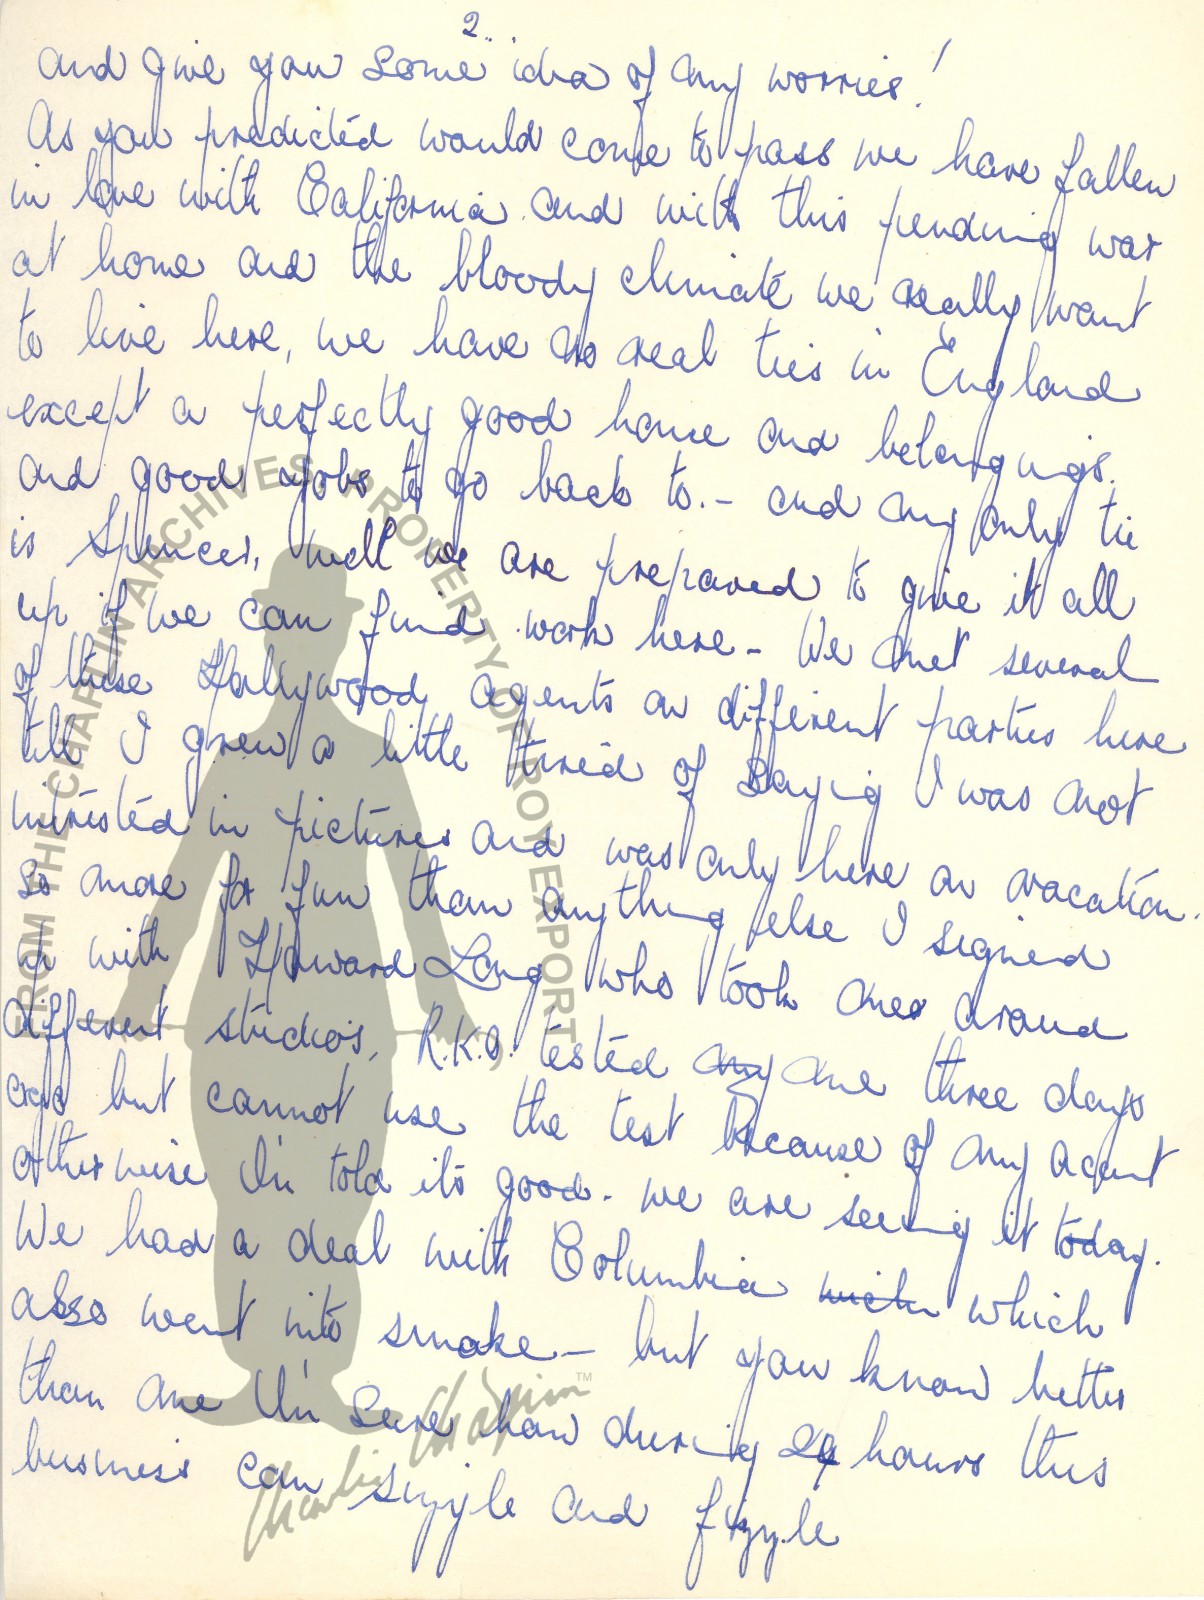 2..
and give you some idea of my worries!
As you predicted would come to pass we have fallen
in love with California and with this pending war
at home and the bloody climate we really want
to live here, we have no real ties in England
except a perfectly good home and belongings.
and good jobs to go back to. - and my only tie
is Spencer, well we are prepared to give it all
up if we can find work here - We met several
of these Hollywood agents on different parties here
till I grew a little tired of saying I was not
interested in pictures and was only here on vacation.
so more for fun than anything else I signed
in with Howard Lang who took me around
different studios, R.K.O. tested my me three days
ago but cannot use the test because of my accent
otherwise I'm told its good - we are seeing it today.
We had a deal with Columbia which
also went into smoke - but you know better
than me I'm sure how during 24 hours this
business can sizzle and fizzle
FROM THE CHAPLIN ARCHIVES. PROPERTY OF ROY EXPORT
Charlie Chaplin TM